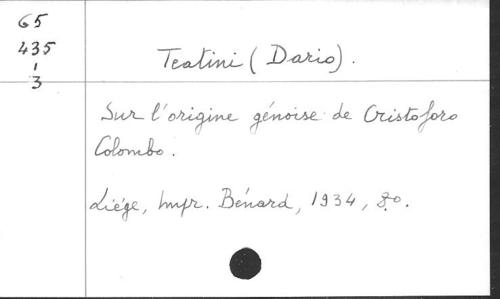 65
435
1
3
Teatini (Dario).
Sur l'origine génoise de Cristoforo
Colombo.
Liége, Impr. Bénard, 1934, 8º.